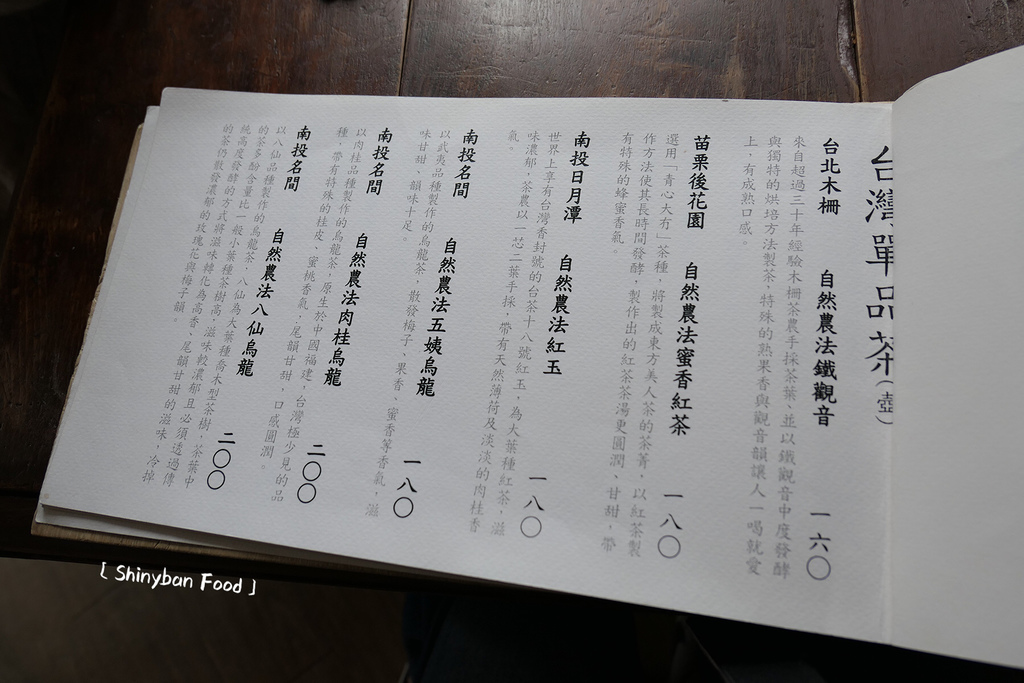 台灣單品茶(壺)
台北木柵 自然農法鐵觀音 一六〇
來自超過三十年經驗木柵茶農手採茶葉、並以鐵觀音中度發酵
與獨特的烘培方法製茶,特殊的熟果香與觀音韻讓人一喝就愛
上,有成熟口感。
苗栗後花園 自然農法蜜香紅茶 一八〇
選用「青心大冇」茶種,將製成東方美人茶的茶菁,以紅茶製
作方法使其長時間發酵,製作出的紅茶茶湯更圓潤、甘甜,帶
有特殊的蜂蜜香氣
南投日月潭 自然農法紅玉 一八〇
世界上享有台灣香封號的台茶十八號紅玉,為大葉種紅茶,滋
味濃郁,茶農以一芯二葉手採,帶有天然薄荷及淡淡的肉桂香
氣。
南投名間 自然農法五姨烏龍 一八〇
以武夷品種製作的烏龍茶,散發梅子、果香、蜜香等香氣,滋
味甘甜、韻味十足。
南投名間 自然農法肉桂烏龍 二〇〇
以肉桂品種製作的烏龍茶,原生於中國福建,台灣極少見的品
種,帶有特殊的桂皮、蜜桃香氣,尾韻甘甜,口感圓潤。
南投名間 自然農法八仙烏龍 二〇〇
以八仙品種製作的烏龍茶,八仙為大葉種喬木型茶樹,茶葉中
的茶多酚含量比一般小葉種茶樹高,滋味較濃郁且必須透過傳
統高度發酵的方式將滋味轉化為高香、尾韻甘甜的滋味,冷掉
的茶仍散發濃郁的玫瑰花與梅子韻
[ Shinyban Food ]